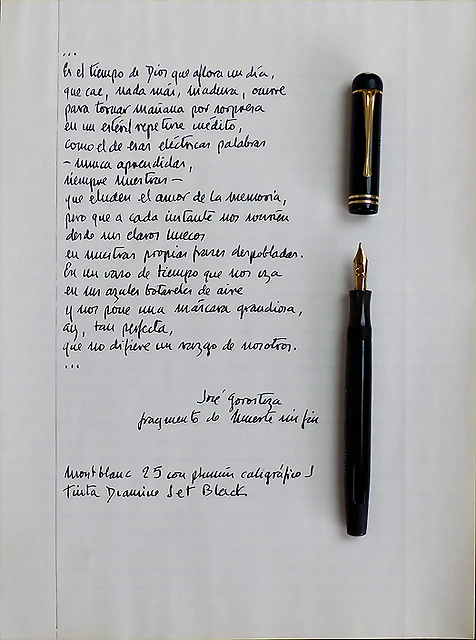 ...
Es el tiempo de Dios que aflora un día,
que cae, nada más, madura, ocurre
para tornar mañana por sorpresa
en un estéril repetirse inédito,
como el de esas eléctricas palabras
- nunca aprendidas,
siempre nuestras -
que eluden el amor de la memoria,
pero que a cada instante nos sonríen
desde sus claros huecos
en nuestras propias frases despobladas.
Es un vaso de tiempo que nos iza
en sus azules botareles de aire
y nos pone una máscara grandiosa,
ay, tan perfecta,
que no difiere un rasgo de nosotros.
...
José Gorostiza
fragmento de "Muerte sin fin
Montblanc 25 con plumín caligráfico J
tinta Diamine Jet Black